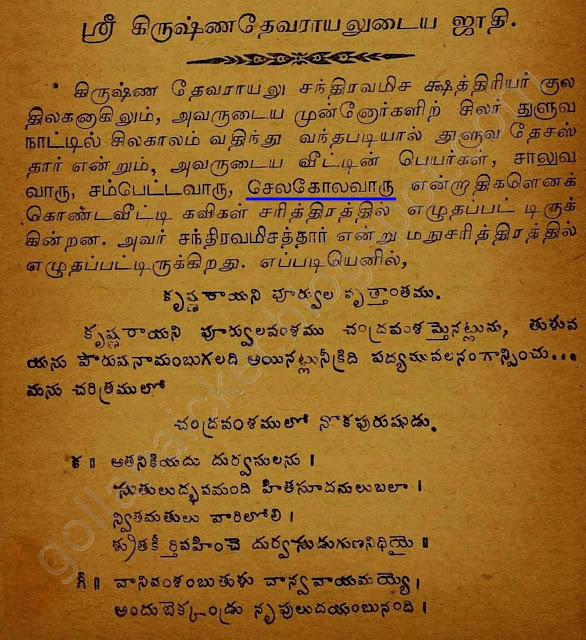 ஸ்ரீ கிருஷ்ணதேவராயலுடைய ஜாதி.
கிருஷ்ண தேவராயலு சந்திரவமிச க்ஷத்திரியர் குல
திலகனாகிலும், அவருடைய முன்னோர்களிற் சிலர் துளுவ
நாட்டில் சிலகாலம் வதிந்து வந்தபடியால் துளுவ தேசஸ்
தார் என்றும், அவருடைய வீட்டின் பெயர்கள், சாலுவ
வாரு, சம்பெட்டவாரு, செலகோலவாரு என்முதிகளெனக்
கொண்டவீட்டி கவிகள் சரித்திரத்தில் எழுதப்பட் டிருக்
கின்றன. அவர் சந்திரவமிசத்தார் என்று மநுசரித்திரத்தில்
எழுதப்பட்டிருக்கிறது. எப்படியெனில்,
కృష్ణరాయని పూర్వుల వృత్తాంతము.
కృష్ణరాయని పూర్వులవంశము చంద్రవంశ మ్తెనట్లును, తుళువ
యను పౌరువనామంబుగలది అయినట్లునీక్రిది పద్యమువలనంగాన్పించు...
మను చరిత్రములో
చంద్రవంశములో నొకపురుషుడు.
క॥ ఆతనికియదు దుర్వసులను।
సుతులుద్భవమంది హితసూదనులుబలా।
న్వితమతులు వారిలోలి।
శ్రుితకీర్తివహించె దుర్వసుడుగుణనిధియై॥
గీ॥ వానివంశంబుతుళు వాన్వవాయమయ్యె।
అందుబెక్కండ్రు నృపులుదయంబునంది।